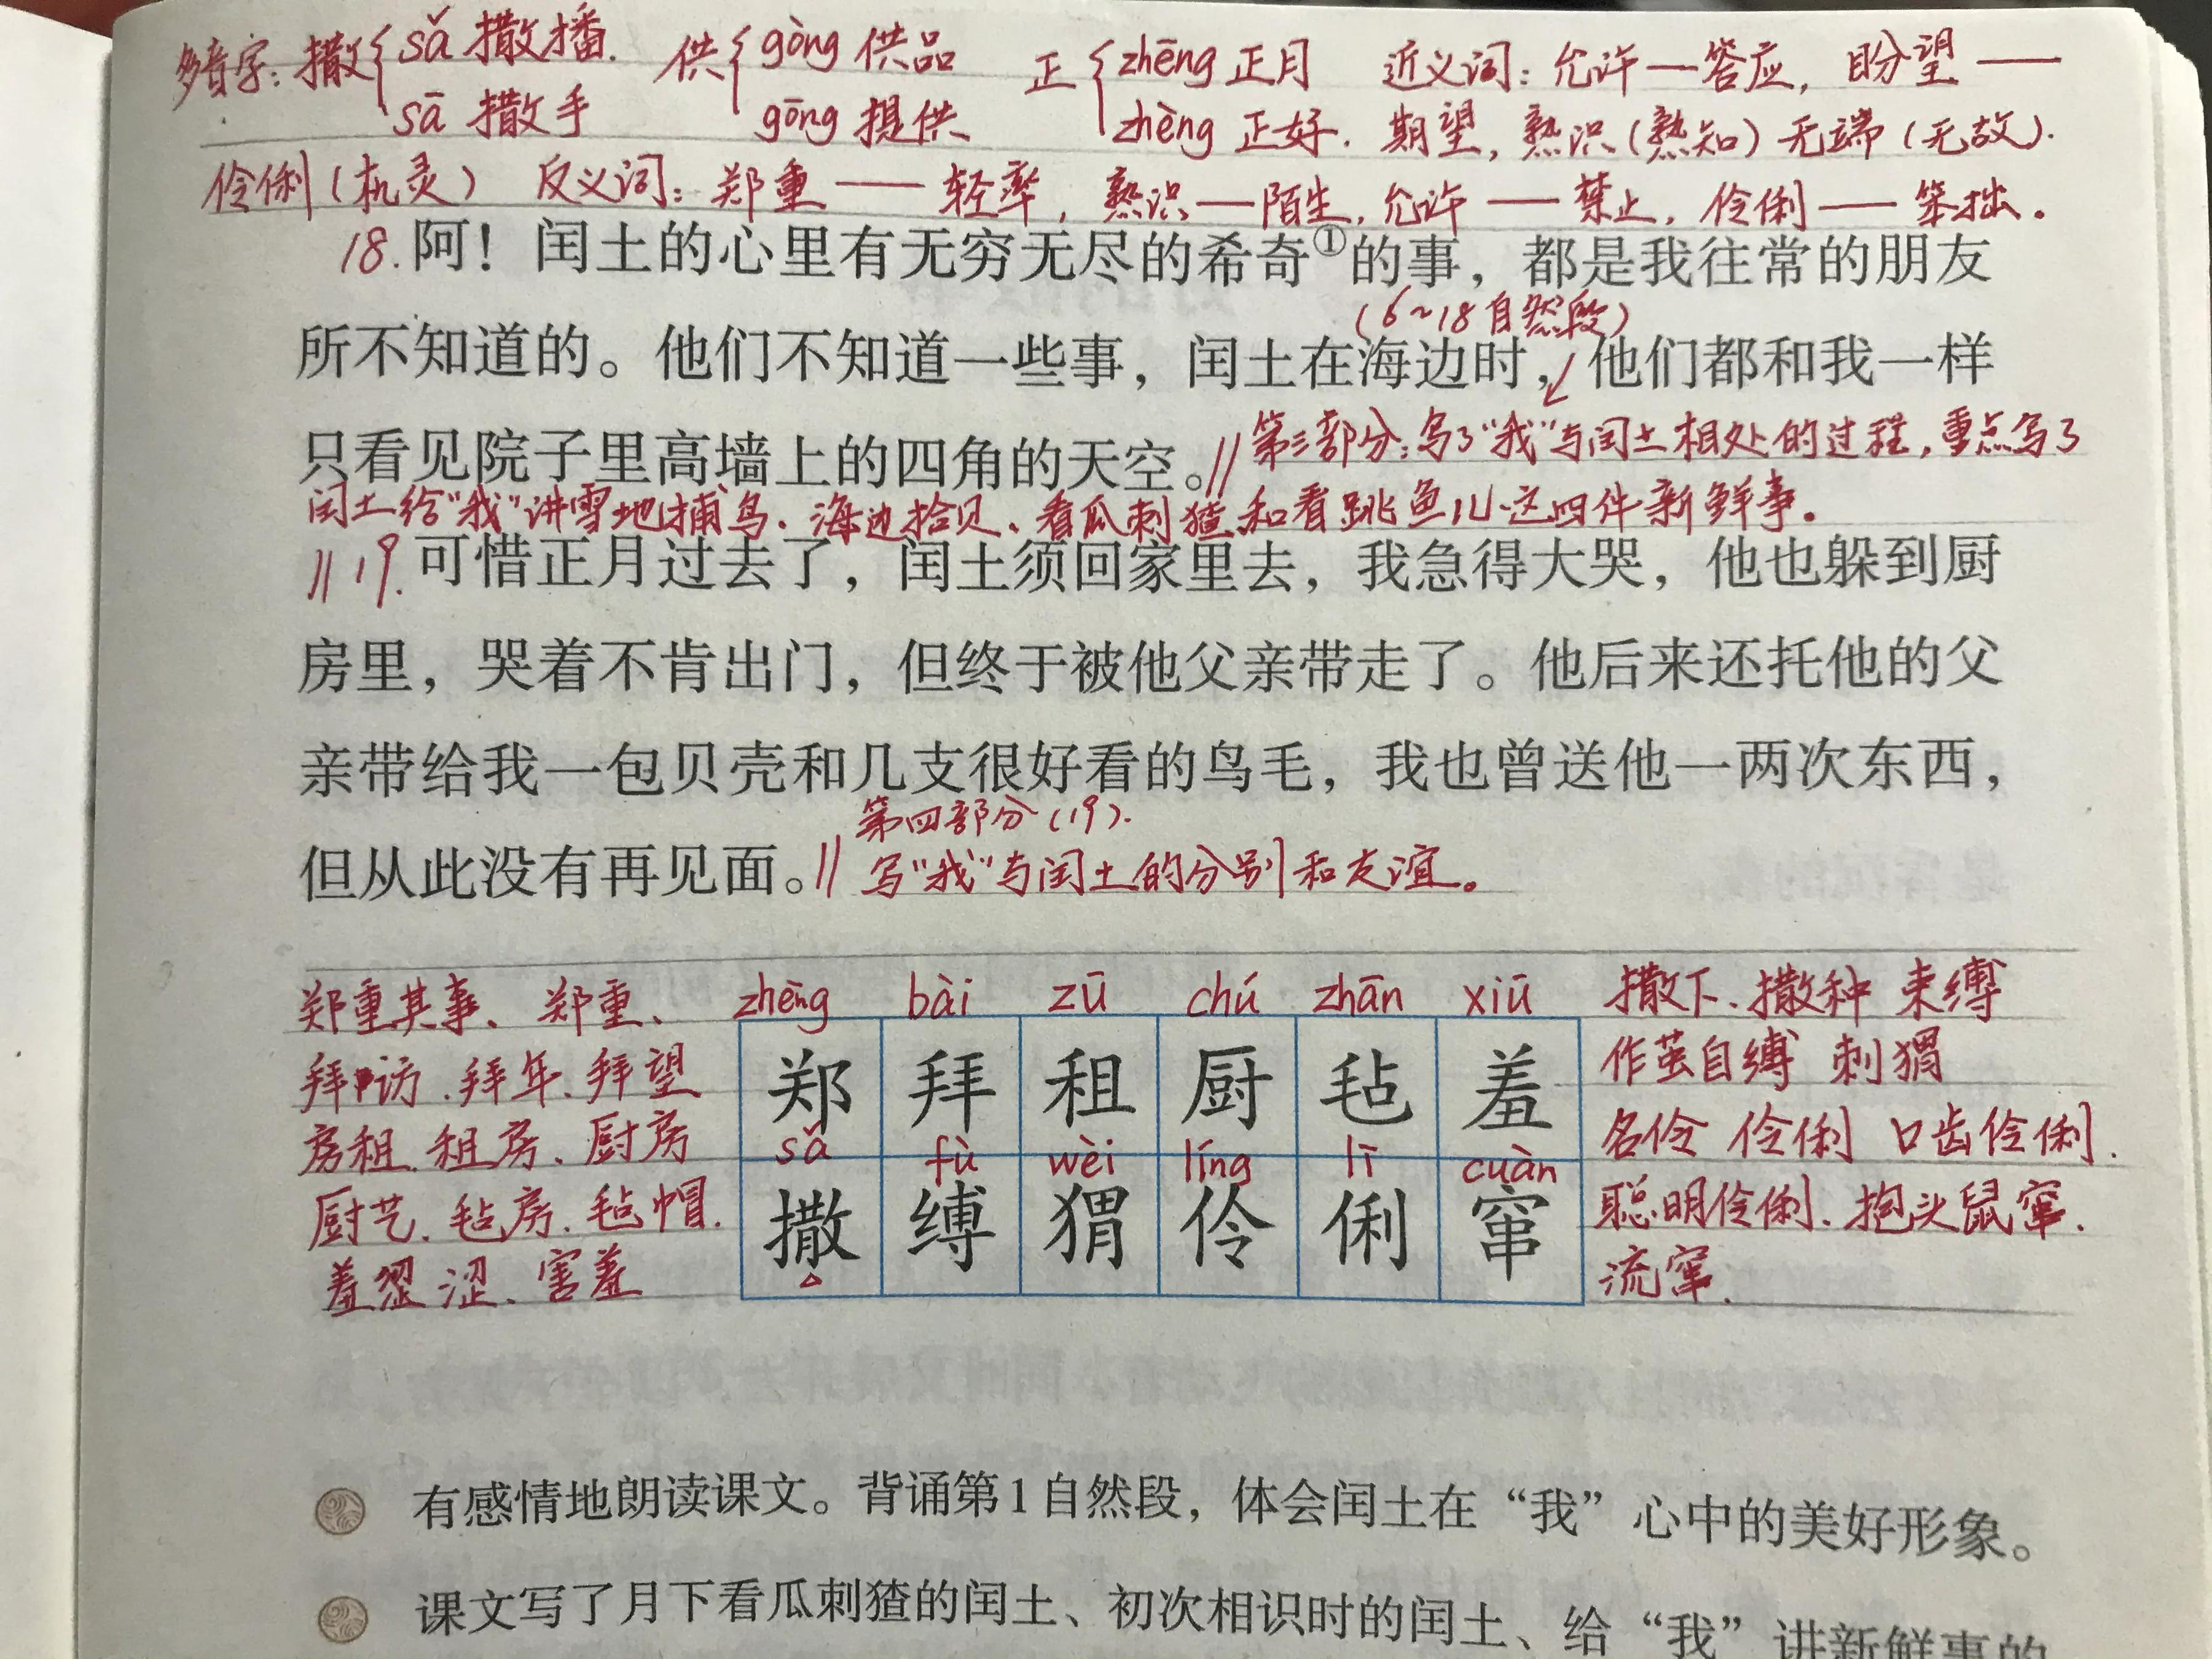 多音字：撒{sǎ 撒播. 供{gòng 供品 正{zhēng 正月 近义词：允许—答应，盼望——
sā 撒手 gōng 提供、 zhèng 正好. 期望，熟识(熟知) 无端(无故).
伶俐(机灵) 反义词：郑重——轻率，熟识—陌生，允许——禁止，伶俐——笨拙。
18.阿！闰土的心里有无穷无尽的希奇①的事，都是我往常的朋友
(6~18自然段)
所不知道的。他们不知道一些事，闰土在海边时，他们都和我一样
只看见院子里高墙上的四角的天空。//第三部分：写了“我”与闰土相处的过程，重点写了
闰土给“我”讲雪地捕鸟、海边拾贝、看瓜刺猹和看跳鱼儿这四件新鲜事。
//19.可惜正月过去了，闰土须回家里去，我急得大哭，他也躲到厨
房里，哭着不肯出门，但终于被他父亲带走了。他后来还托他的父
亲带给我一包贝壳和几支很好看的鸟毛，我也曾送他一两次东西，
第四部分(19).
但从此没有再见面。//写“我”与闰土的分别和友谊。
郑重其事、郑重、 zhèng bài zū chú zhān xiū 撒下、撒种 束缚
拜访.拜年.拜望 郑 拜 租 厨 毡 羞 作茧自缚 刺猬
房租.租房、厨房 sǎ fù wèi líng lì cuàn 名伶 伶俐 口齿伶俐.
厨艺.毡房.毡帽. 撒 缚 猬 伶 俐 窜 聪明伶俐、抱头鼠窜.
羞涩 涩、害羞 流窜.
有感情地朗读课文。背诵第1自然段，体会闰土在“我”心中的美好形象。
课文写了月下看瓜刺猹的闰土、初次相识时的闰土、给“我”讲新鲜事的